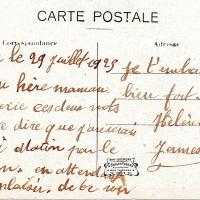 CARTE POSTALE
Correspondance
Adresse
le 29 juillet 1925
chère maman
ces deux mots
dire que j'arriverai
matin par le
en attendant
plaisir de te voir
je t'emb
bien fort
Hélène
James